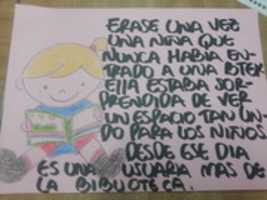 ERASE UNA VEZ
UNA NIÑA QUE
NUNCA HABIA EN-
TRADO A UNA BTEK
ELLA ESTABA SOR-
PRENDIDA DE VER
UN ESPACIO TAN LIN-
DO PARA LOS NIÑOS
DESDE ESE DIA
ES UNA USUARIA MAS DE
LA BIBLIOTECA.